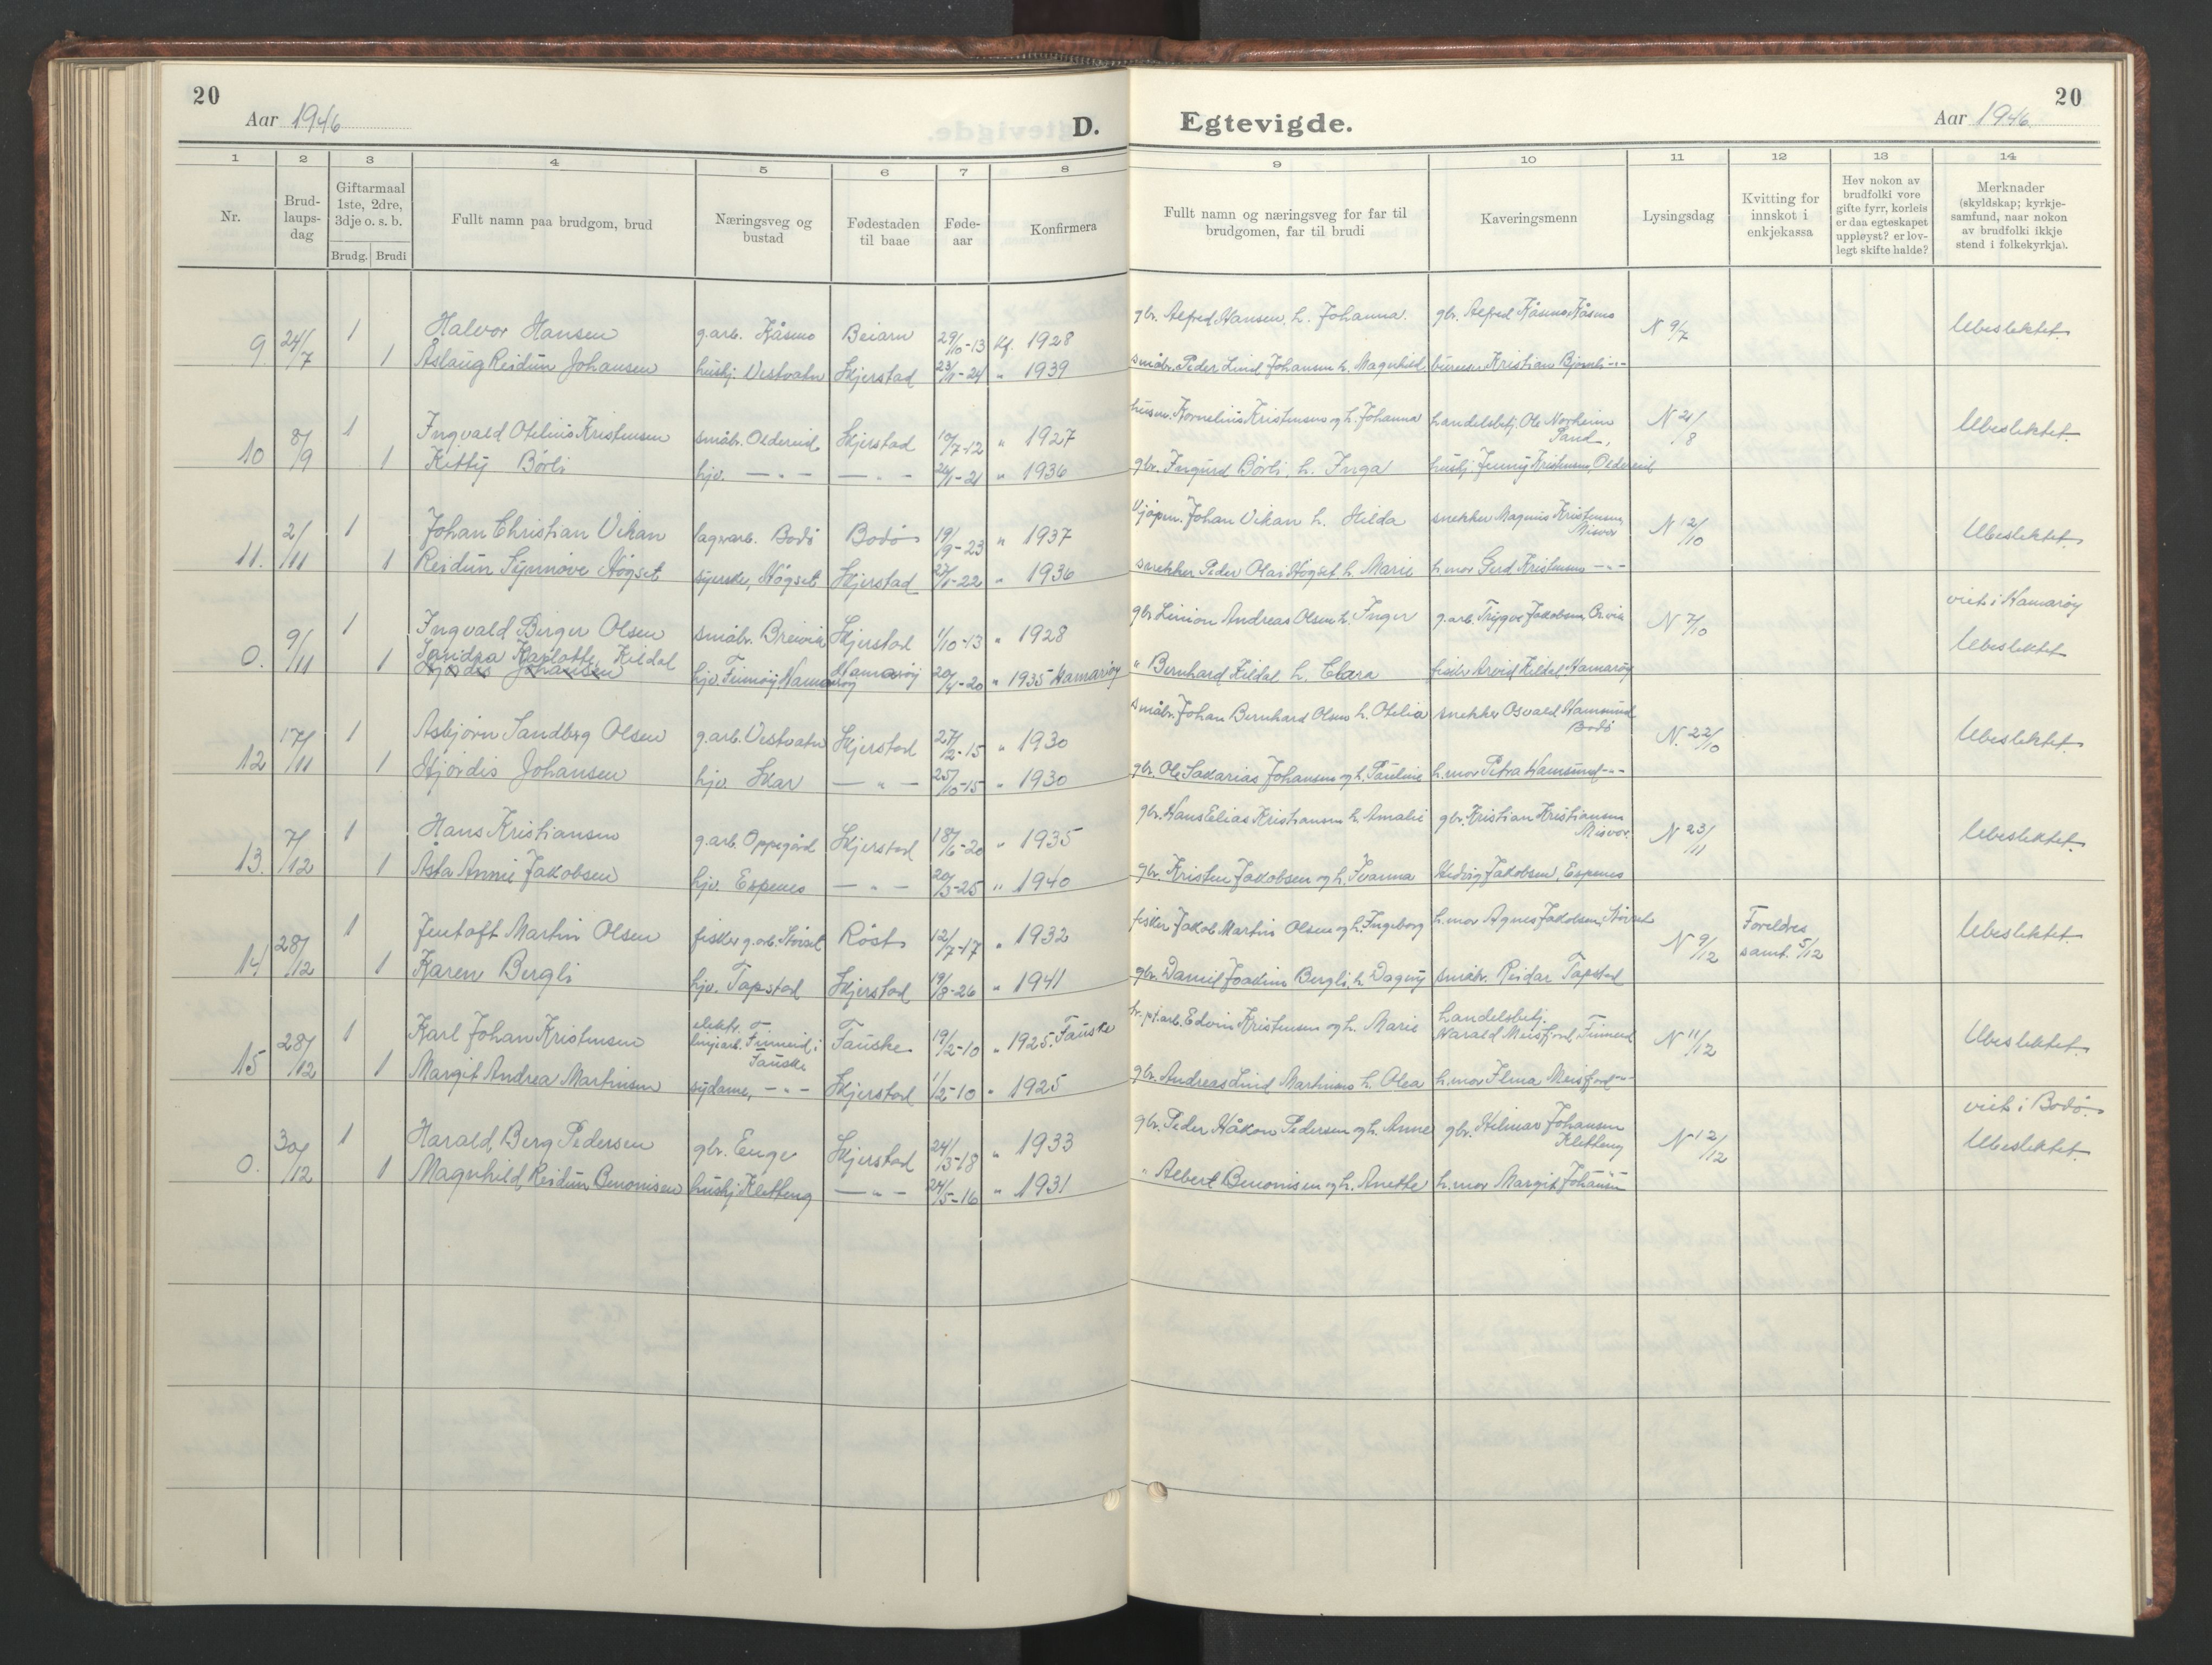 20
Aar 1946
D.
1 2 3 4 5 6 7 8
Nr.
Brud-
laups-
dag
Giftarmaal
1ste, 2dre,
3dje o. s. b.
Brudg. Brudi
Fullt namn paa brudgom, brud
Næringsveg og
bustad
Fødestaden
til baae
Føde-
aar
Konfirmera
9. 24/7 1 Halvor Hansen g.arb. Kåsmo Beiarn 29/10-13 Kf. 1928
1 Åslaug Reidun Johansen hushj. Vestvatn Skjerstad 23/9-24 " 1939
10 8/9 1 Ingvald Otelius Kristensen småbr. Oldereid Skjerstad 10/7-12 " 1927
1 Kitty Børli hjv. — " — — " — 26/1-21 " 1936
11. 2/11 1 Johan Christian Vikan lagerarb. Bodø Bodø 19/9-23 " 1937
1 Reidun Synnøve Høgset syerske, Høgset Skjerstad 23/1-22 " 1936
0. 9/11 1 Ingvald Birger Olsen småbr. Breivik Skjerstad 1/10-13 " 1928
1 Sandra Karlotte Kildal
Hjørdis Johansen hjv. Finnøy, Hamarøy Hamarøy 20/4-20 " 1935 Hamarøy
12 17/11 1 Asbjørn Sandberg Olsen g.arb. Vestvatn Skjerstad 27/12-15 " 1930
1 Hjørdis Johansen hjv. Skar — " — 25/10-15 " 1930
13. 7/12 1 Hans Kristiansen g.arb. Oppegård Skjerstad 18/6-20 " 1935
1 Åsta Annie Jakobsen hjv. Espenes — " — 20/3-25 " 1940
14 28/12 1 Jentoft Martin Olsen fisker g.arb. Støvset Røst 12/7-17 " 1932
1 Karen Bergli hjv. Tapstad Skjerstad 19/8-26 " 1941
15 28/12 1 Karl Johan Kristensen elektr. linjearb. Finneid i Fauske Fauske 19/2-10 " 1925. Fauske
1 Margit Andrea Martinsen sydame, — " — Skjerstad 1/2-10 " 1925
0. 30/12 1 Harald Berg Pedersen gbr. Enge Skjerstad 24/3-18 " 1933
1 Magnhild Reidun Benonisen hushj. Kletteng — " — 24/5-16 " 1931
Egtevigde.
20
Aar 1946
9 10 11 12 13 14
Fullt namn og næringsveg for far til
brudgomen, far til brudi
Kaveringsmenn
Lysingsdag
Kvitting for
innskot i
enkjekassa
Hev nokon av
brudfolki vore
gifte fyrr, korleis
er daa egteskapet
uppløyst? er lov-
legt skifte halde?
Merknader
(skyldskap; kyrkje-
samfund, naar nokon
av brudfolki ikkje
stend i folkekyrkja).
gbr. Alfred Hansen, h. Johanna. gbr. Alfred Kåsmo, Kåsmo N 9/7 Ubeslektet.
småbr. Peder Lind Johansen h. Magnhild bureiser Kristian Bjørnli -"-
husm. Kornelius Kristensen og h. Johanna handelsbetj. Ole Norheim Sand, N 21/8 Ubeslektet.
gbr. Ingvard Børli, h. Inga hushj. Jenny Kristensen, Oldereid
Johan Vikan h. Hilda snekker Magnus Kristensen, Misvær N 12/10 Ubeslektet.
snekker Peder Olai Høgset h. Marie h.mor Gerd Kristensen -"-
gbr. Andreas Olsen h. Inger g.arb. Trygve Jakobsen N 7/10 viet i Hamarøy
Ubeslektet
" Bernhard Kildal h. Clara fisker Arvid Kildal, Hamarøy
småbr. Johan Bernhard Olsen h. Otelia snekker Osvald Hamsund Bodø N. 22/10 Ubeslektet.
gbr. Ole Sakarias Johansen og h. Pauline h.mor Petra Hamsund -"-
gbr. Hans Elias Kristiansen h. Amalie gbr. Kristian Kristiansen Misvær. N 23/11 Ubeslektet.
gbr. Kristen Jakobsen og h. Ivanna Hedvig Jakobsen, Espenes
fisker Jakob Martin Olsen og h. Ingeborg h.mor Agnes Jakobsen, Støvset N 9/12 Foreldres samt. 5/12 Ubeslektet.
gbr. Daniel Joakim Bergli, h. Dagny småbr. Reidar Tapstad
Edvin Kristensen og h. Marie handelsbetj. Harald Meisfjord, Finneid N 11/12 Ubeslektet.
gbr. Andreas Lind Martinsen h. Olea h.mor Elma Meisfjord -"-
gbr. Peder Håkon Pedersen og h. Anne gbr. Hilmar Johansen Kletteng N 12/12 viet i Bodø.
Ubeslektet.
" Albert Benonisen og h. Anette h.mor Margit Johansen -"-